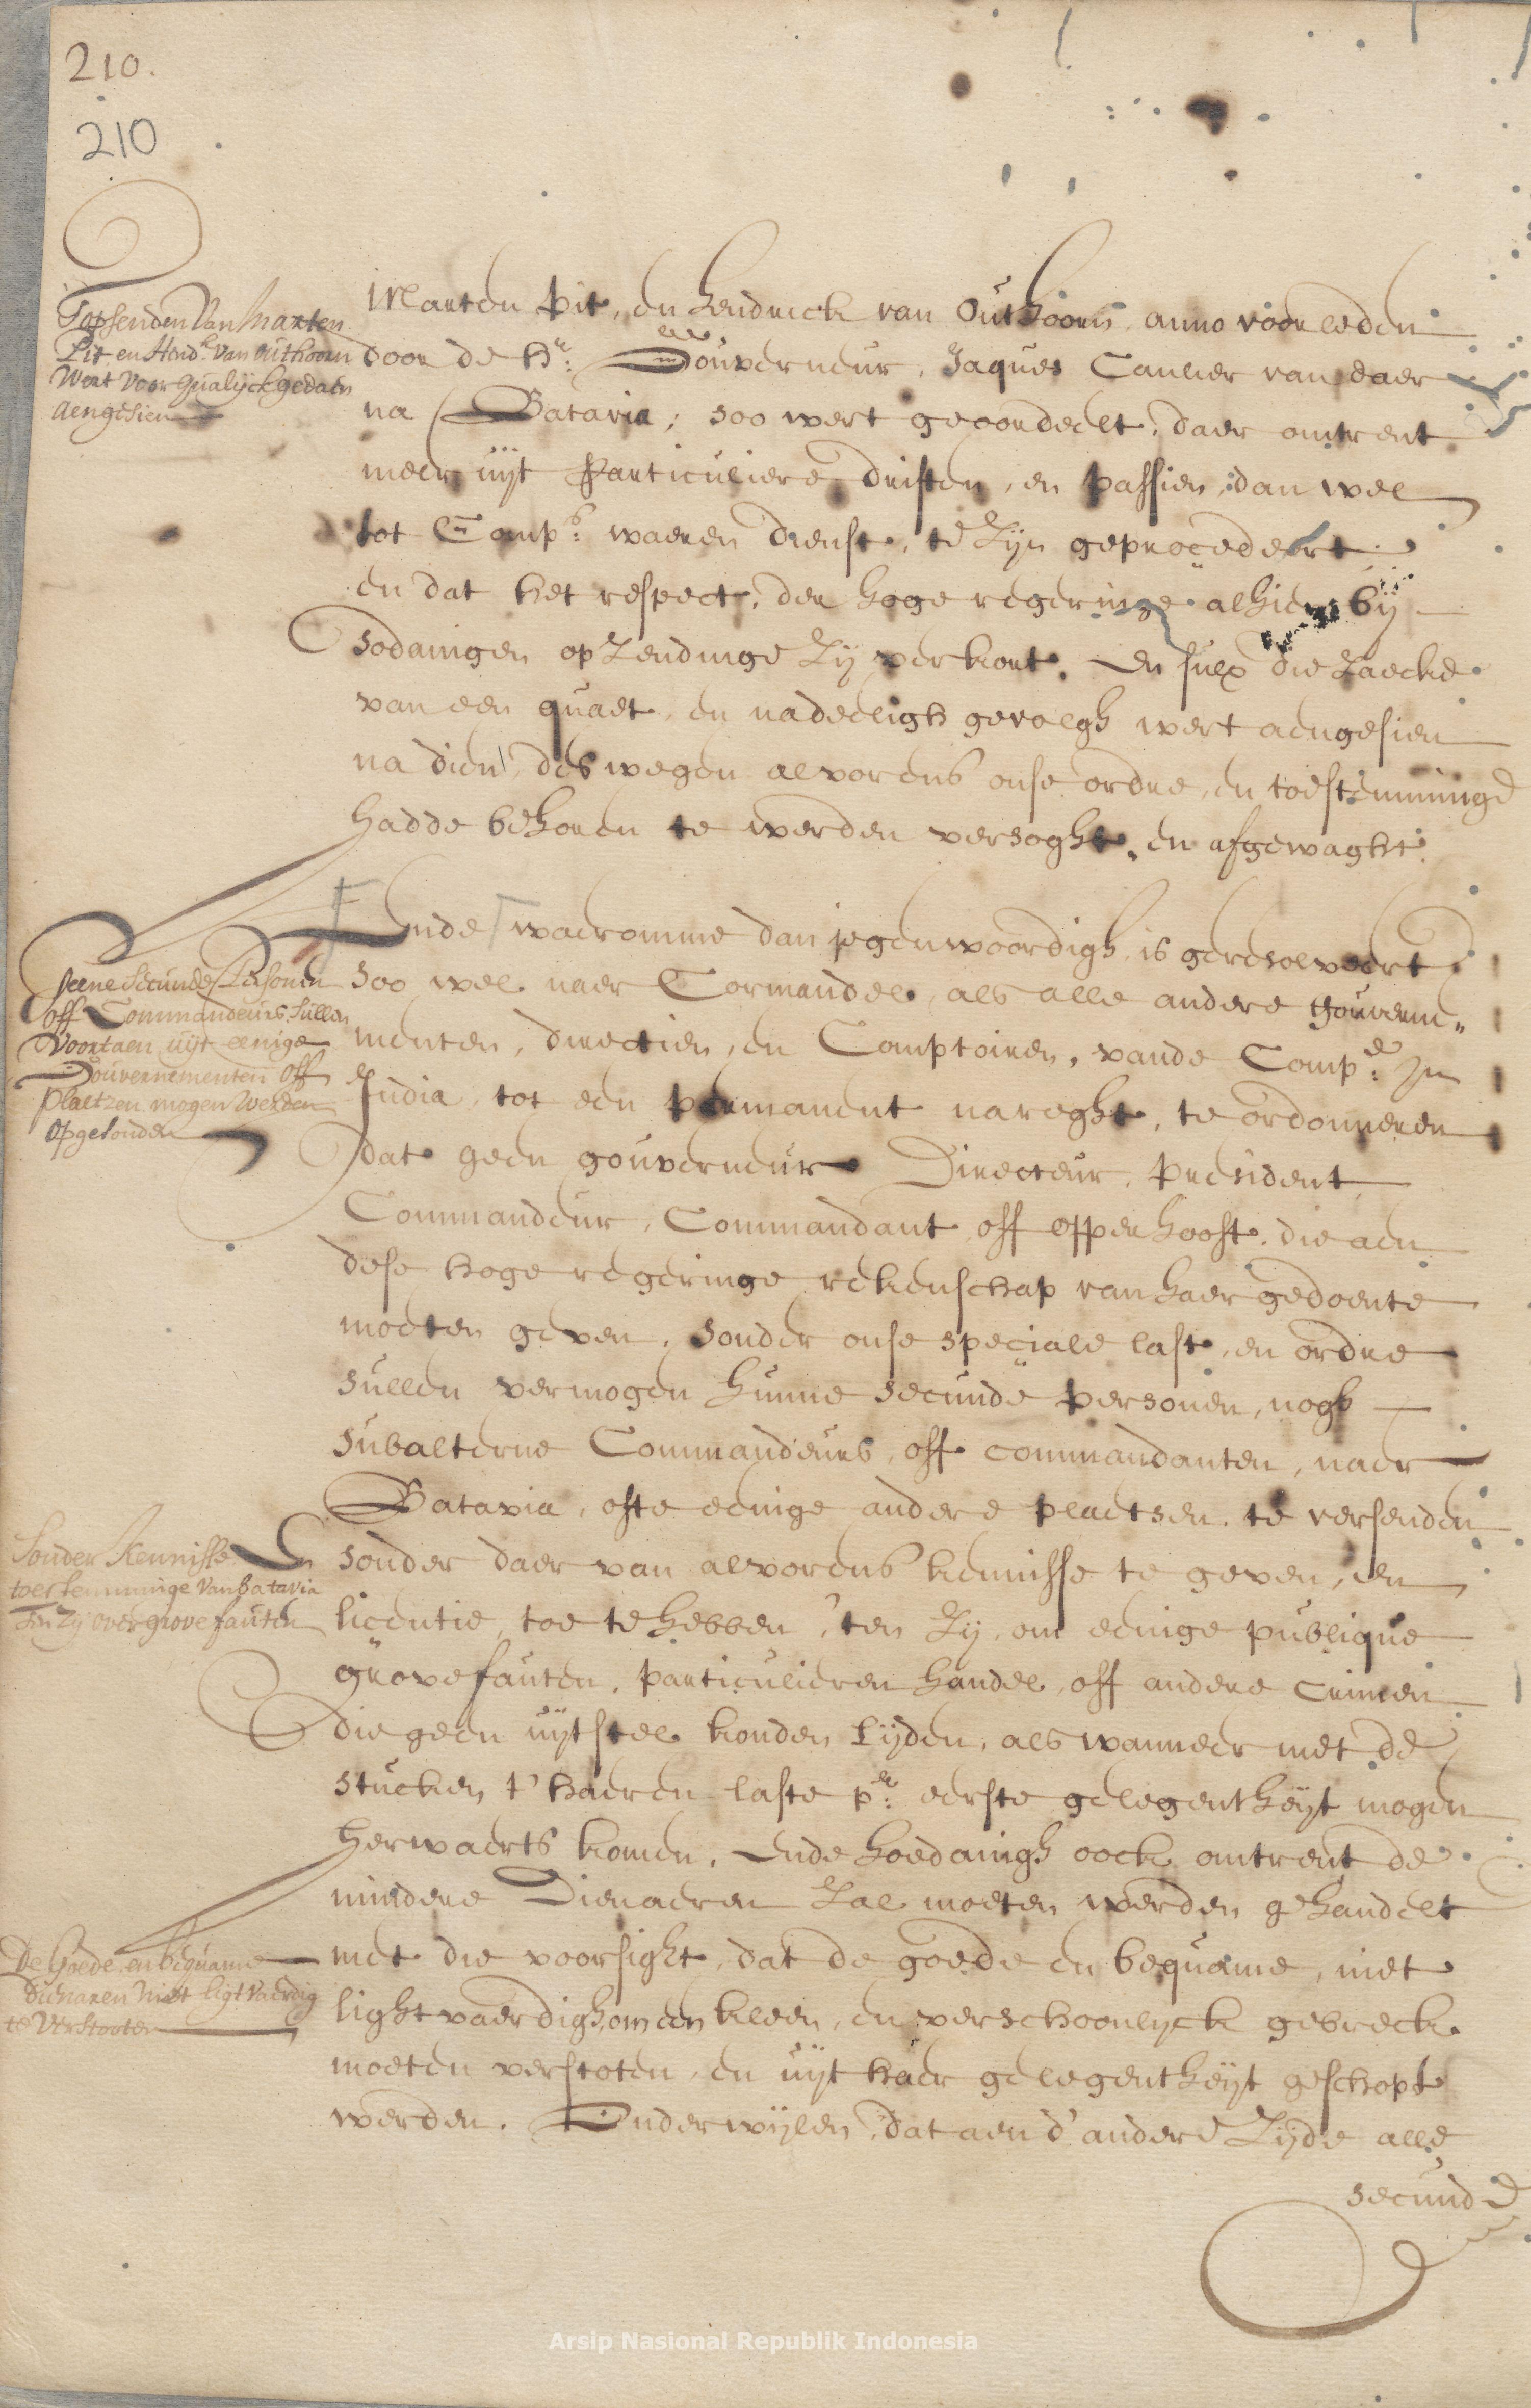 210.
210
T'opsenden Van Marten
Pit en Hend.k Van outhoorn
Wert Voor qualijck gedaen
aengesien
Marten Pit, en Hendrick van Outhoorn, anno voorleden
door de Hr: Gouverneur, Jaques Caulier van daer
na Batavia; soo wert geoordeelt, daer omtrent
meer uijt particuliere driften, en passien, dan wel
tot Comps: waeren dienst, te zijn geprocedeert
en dat het respect, der hoge regeringe alhier bij
sodanigen opzendinge zij verkort. en sulx die zaecke
van een quaet, en nadeeligh gevolgh wert aengesien
na dien, deswegen alvorens onse ordre, en toestemminge
hadde behoren te werden versoght, en afgewaght.
Ende waeromme dan jegenwoordigh is geresolveert
Geene Secunde Persoonen
off Commandeurs Sullen
Voortaen uijt eenige
Gouvernementen off
plaetzen mogen Werden
opgesonden
soo wel naer Cormandel, als alle andere Gouverne„
menten, directien, en Comptoiren, vande Compe: In
India, tot een permanent nareght, te ordonneren
dat geen gouverneur Directeur, President,
Commandeur, Commandant, off opperhooft, die aen
dese hoge regeringe rekenschap van haer gedoente
moeten geven, sonder onse speciale last, en ordre
sullen vermogen hunne secunde personen, nogh
subalterne Commandeurs, off commandanten, naer
Batavia, ofte eenige andere plaetsen, te versenden
Sonder Kennisse En
toestemminge Van Batavia
Ten Zij over grove fauten
sonder daer van alvorens kennisse te geven, en
licentie, toe te hebben, ten zij, om eenige publique
grove fauten, particulieren handel, off andere crimen
die geen uijtstel konden lijden, als wanneer met de
stucken t' haeren laste pr: eerste gelegentheijt mogen
herwaerts komen, ende hoedanigh oock omtrent de
mindere Dienaeren zal moeten werden gehandelt
De Goede en bequame
dienaren Niet ligtvaerdig
te Verstooten
met die voorsight, dat de goede en bequame, niet
lightvaerdigh, om een kleen, en verschoonlijck gebreck
moeten verstoten, en uijt haer gelegentheijt geschopt
werden. Onderwijlen, dat aen d' andere zijde alle
secunde
Arsip Nasional Republik Indonesia